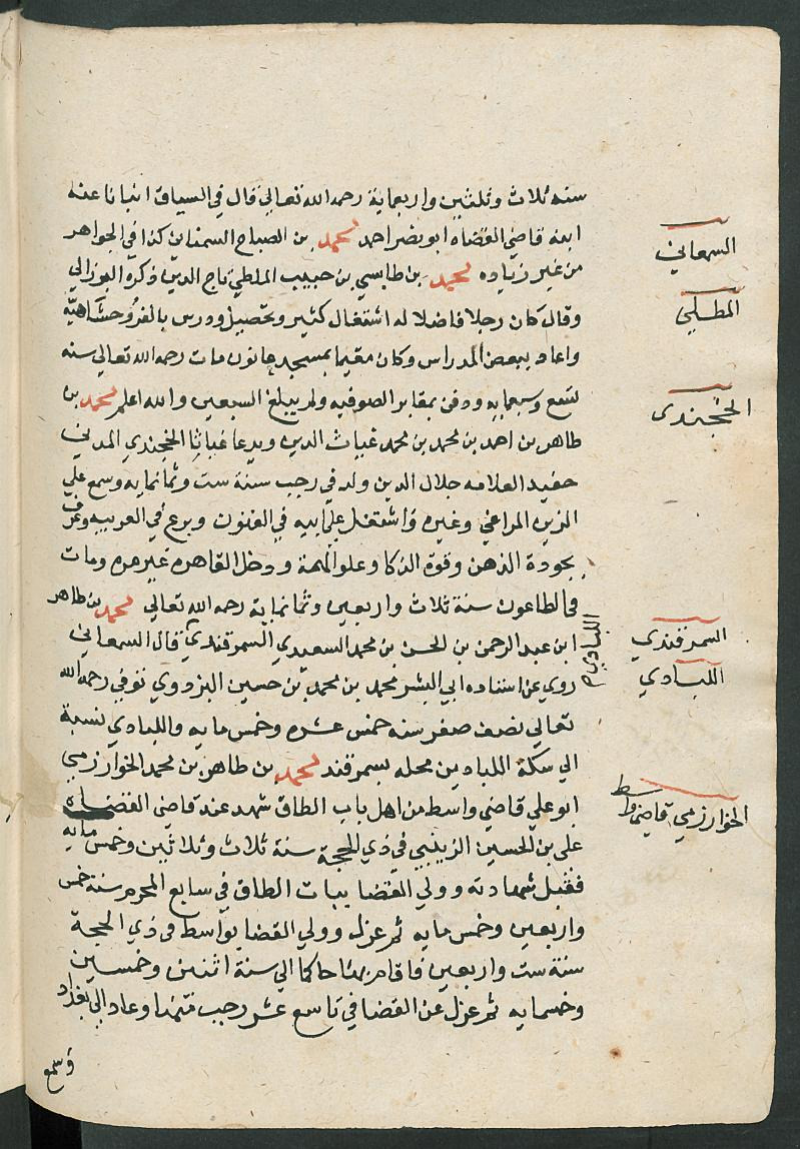 سنه ثلاث وثلثين واربعماية رحمه الله تعالى قال في السياق انبانا عنه
ابنه قاضي القضاه ابو نصر احمد محمد بن الصباح السمنانى كذا في الجواهر
السمعاني
من غير زياده محمد بن طابسي بن حبيب الملطي تاج الدين ذكره البرزالي
المطلبي
وقال كان رجلا فاضلا له اشتغال كثير وتحصيل ودرس بالفروخشاهيه
واعاد ببعض المدارس وكان مقيما بمسجد هانون مات رحمه الله تعالى سنه
تسع وسبعمايه ودفن بمقابر الصوفيه ولم يبلغ السبعين والله اعلم محمد بن
الخجندى
طاهر بن احمد بن محمد بن محمد غياث الدين ويدعا غياثا الخجندي المدني
حفيد العلامه جلال الدين ولد في رجب سنة ست وثمانمايه وسمع علي
الزين المراغي وغيره واشتغل علي ابيه في الفنون وبرع في العربيه وعرف
بجودة الذهن وقوة الذكا وعلو الهمة ودخل القاهره غير مره ومات
في الطاعون سنة ثلاث واربعين وثمانماية رحمه الله تعالى محمد بن طاهر
ابن عبد الرحمن بن الحسن بن محمد السعيدي السمرقندي قال السمعاني
اللبادي
السمرقندي
روي عن استاده ابي اليسر محمد بن محمد بن حسين البزدوي توفي رحمه الله
اللبادي
تعالى نصف صفر سنه خمس عشره وخمس مايه واللبادي نسبة
الي سكة اللبادين محله بسمرقند محمد بن طاهر بن محمد الخوارزمي
ابو علي قاضي واسط من اهل باب الطاق شهد عند قاضي القضاه
الخوارزمي قاضي واسط
على بن الحسين الزينبي في ذي الحجة سنة ثلاث وثلاثين وخمس مايه
فقبل شهادته وولي القضا بباب الطاق في سابع المحرم سنة خمس
واربعين وخمس مايه ثم عزل وولي القضا بواسط في ذي الحجة
سنة ست واربعين فاقام بها حاكما الي سنة اثنين وخمسين
وخمسمايه ثم عزل عن القضا في تاسع عشر رجب منها وعاد الي بغداد
وسمع